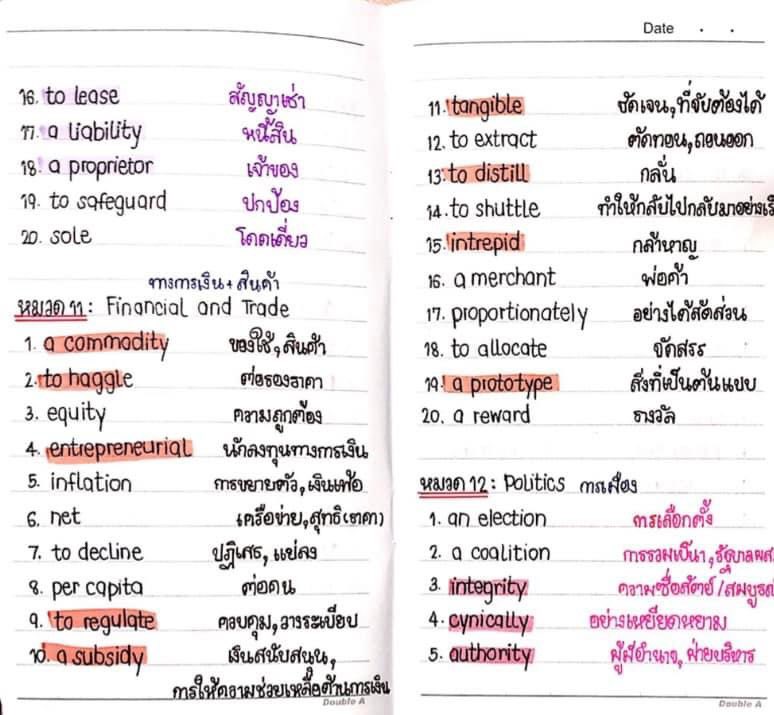 16. to lease สัญญาเช่า
17. a liability หนี้สิน
18. a proprietor เจ้าของ
19. to safeguard ปกป้อง
20. sole โดดเดี่ยว
ทางการเงิน + สินค้า
หมวด 11 : Financial and Trade
1. a commodity ของใช้, สินค้า
2. to haggle ต่อรองราคา
3. equity ความถูกต้อง
4. entrepreneurial นักลงทุนทางการเงิน
5. inflation การขยายตัว, เงินเฟ้อ
6. net เครือข่าย, สุทธิ(ราคา)
7. to decline ปฏิเสธ, แย่ลง
8. per capita ต่อคน
9. to regulate ควบคุม, วางระเบียบ
10. a subsidy เงินสนับสนุน,
การให้ความช่วยเหลือด้านการเงิน
Double A
Date . .
11. tangible ชัดเจน, ที่จับต้องได้
12. to extract ตัดทอน, ถอนออก
13. to distill กลั่น
14. to shuttle ทำให้กลับไปกลับมาอย่าง
15. intrepid กล้าหาญ
16. a merchant พ่อค้า
17. proportionately อย่างได้สัดส่วน
18. to allocate จัดสรร
19. a prototype สิ่งที่เป็นต้นแบบ
20. a reward รางวัล
หมวด 12 : Politics การเมือง
1. an election การเลือกตั้ง
2. a coalition การรวมเป็น
3. integrity ความซื่อสัตย์ /
4. cynically อย่างเหยียดหยาม
5. authority ผู้มีอำนาจ, ฝ่ายบริหาร
Double A